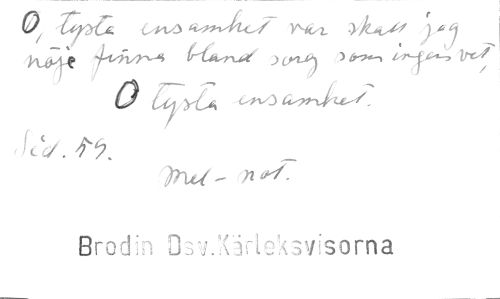 O, tysta ensamhet var skall jag
nöje finna bland sorg som ingen vet,
O tysta ensamhet.
Sid. 59.
Mel - not.
Brodin Dsv.Kärleksvisorna